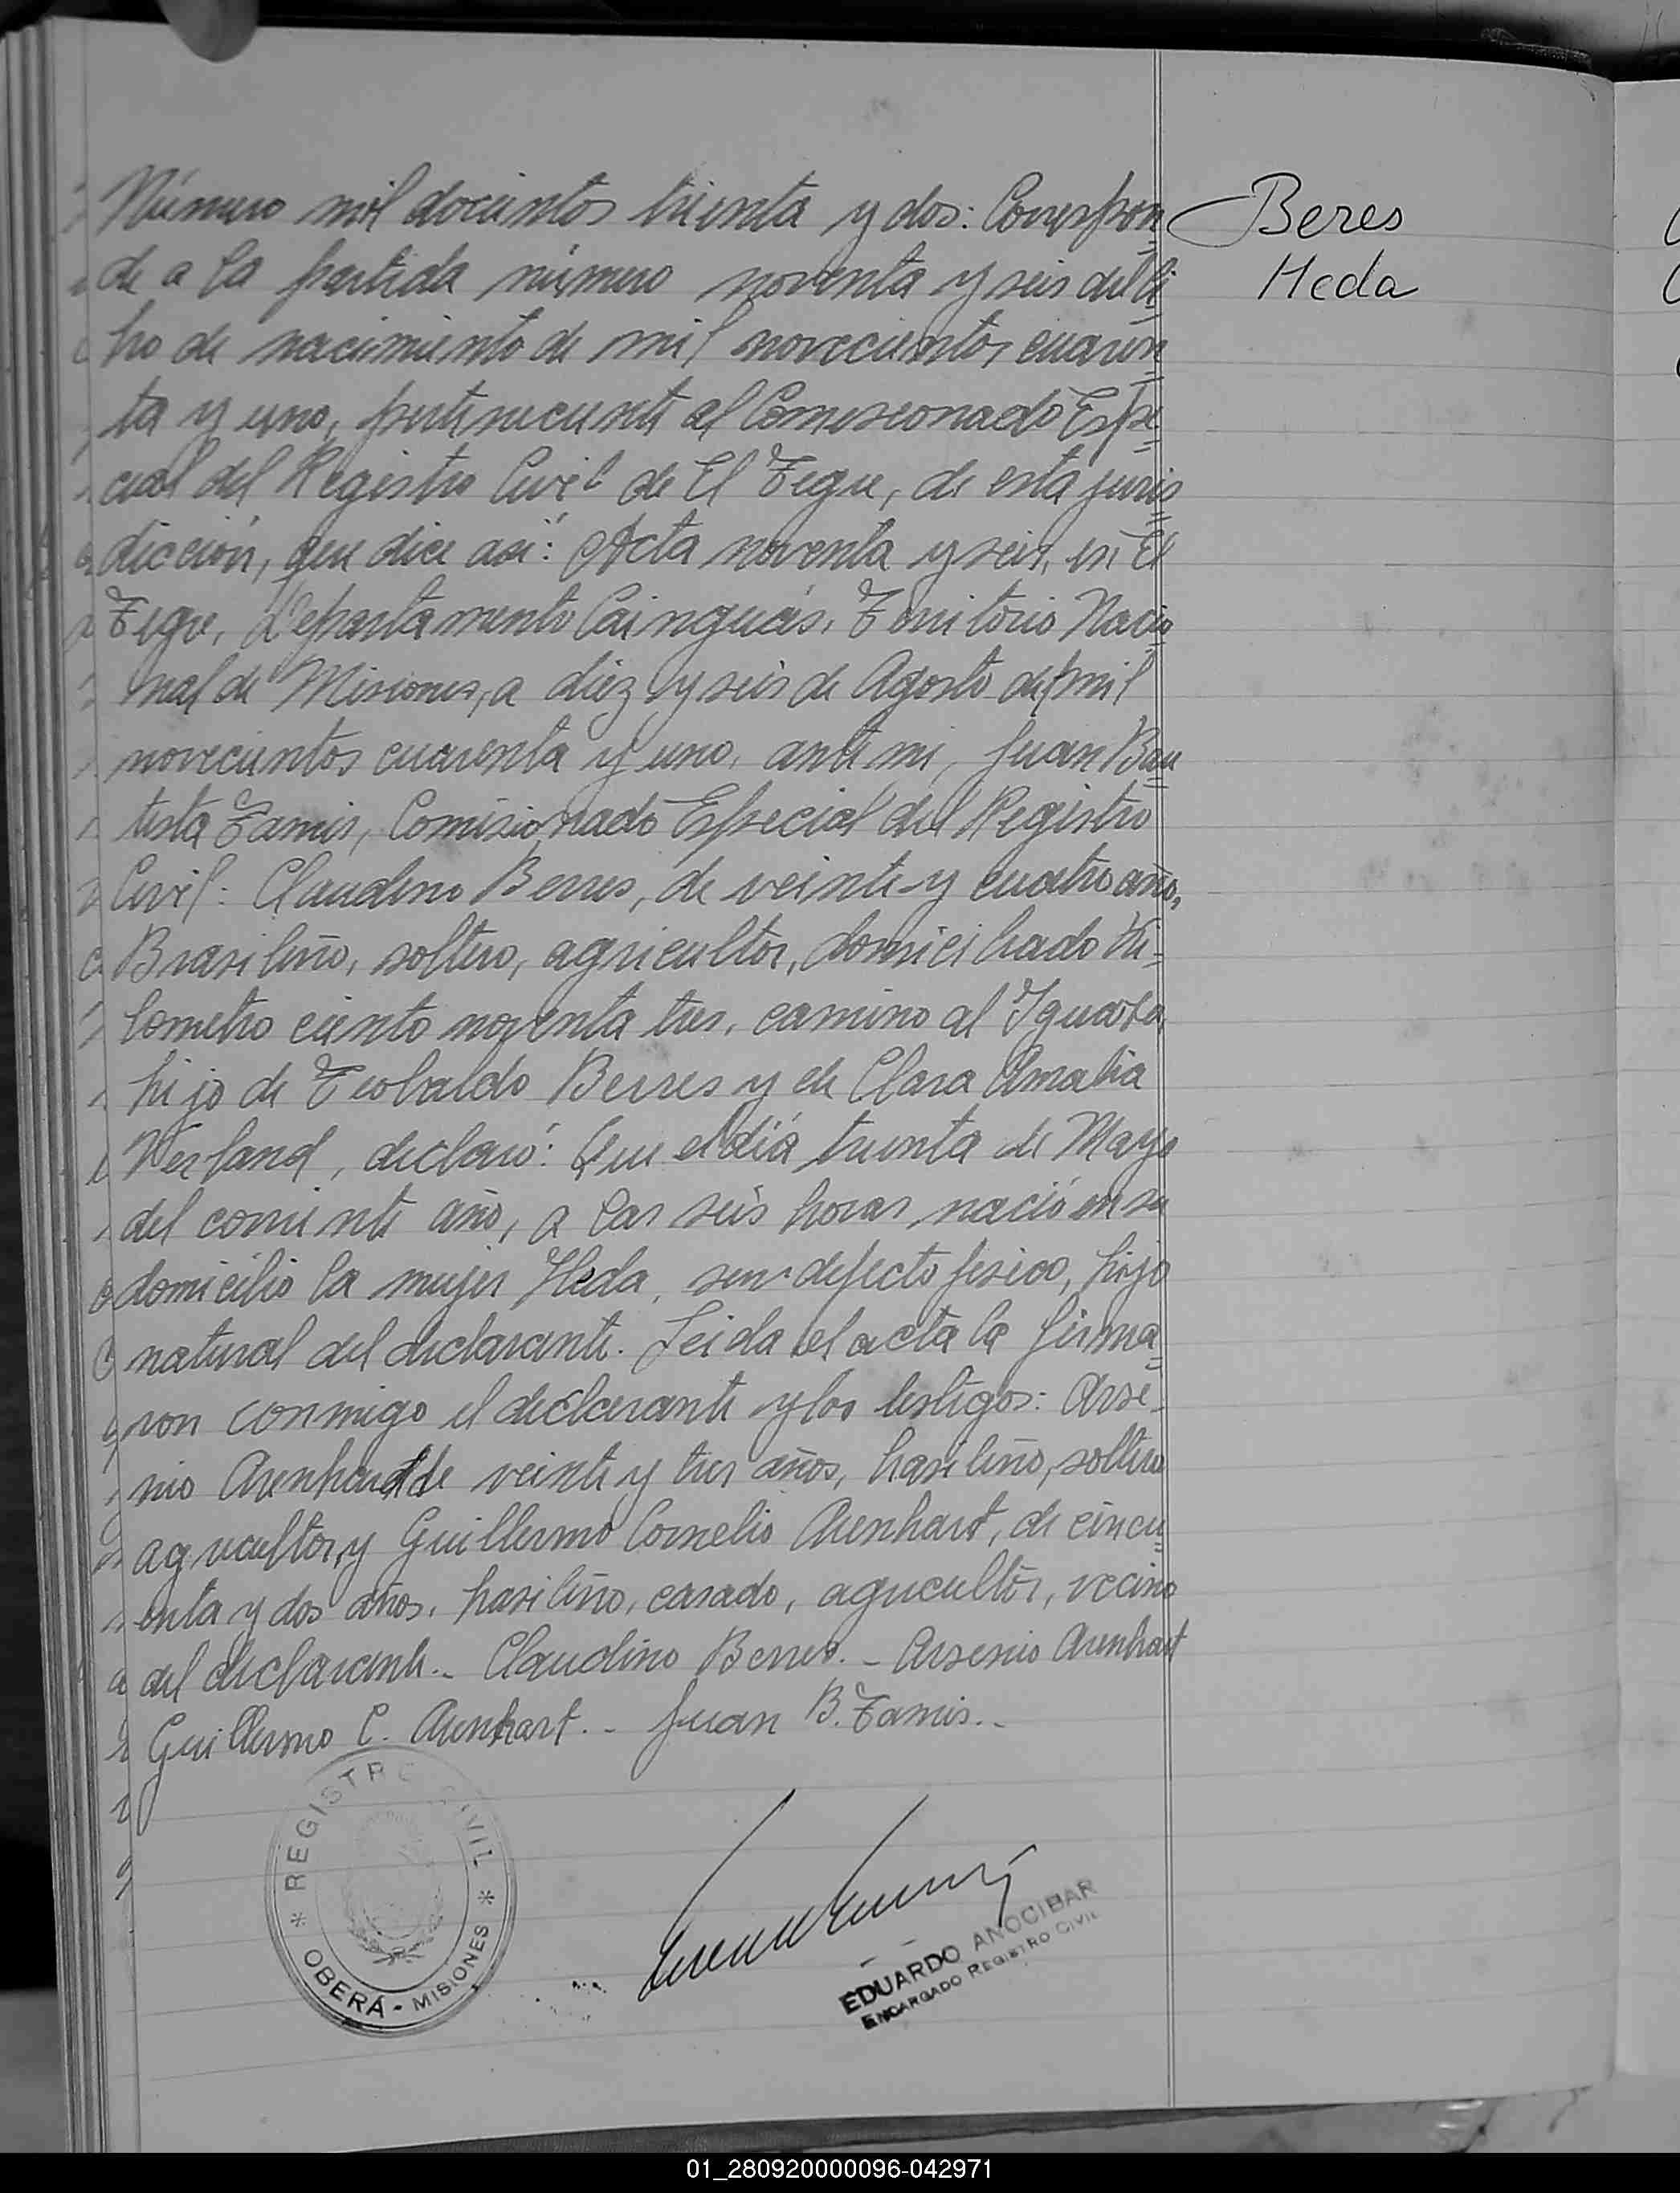 Número mil docientos trienta y dos: Correspon= Beres
de a la partida número noventa y seis del li= Heda
bro de nacimiento de mil novecientos cuaren=
ta y uno, perteneciente al Comisionado Espe=
cial del Registro Civil de El Tigre, de esta juris=
dicción, que dice así: Acta noventa y seis, en El
Tigre, Departamento Cainguás, Territorio Nacio=
nal de Misiones, a diez y seis de Agosto de mil
novecientos cuarenta y uno, ante mi, Juan Bau=
tista Tamis, Comisionado Especial del Registro
Civil: Claudino Berres, de veinte y cuatro años,
Brasileño, soltero, agricultor, domiciliado Ki=
lometro ciento noventa tres, camino al
hijo de Teobaldo Berres y de Clara Amalia
declaró: Que el día trienta de Mayo
del corriente año, a las seis horas nació en su
domicilio la mujer Heda, sin defecto fisico, hijo
natural del declarante. Leida el acta la firma=
ron conmigo el declarante y los testigos: Arse-
nio Arenhart de veinte y tres años, brasileño, soltero
agricultor, y Guillermo Cornelio Arenhart, de cincu=
enta y dos años, brasileño, casado, agricultor, vecino
del declarante.- Claudino Berres.- Arsenio Arenhart
Guillermo C. Arenhart.- Juan B. Tamis.-
REGISTRO CIVIL
OBERÁ - MISIONES
EDUARDO ANOCIBAR
ENCARGADO REGISTRO CIVIL
01_280920000096-042971